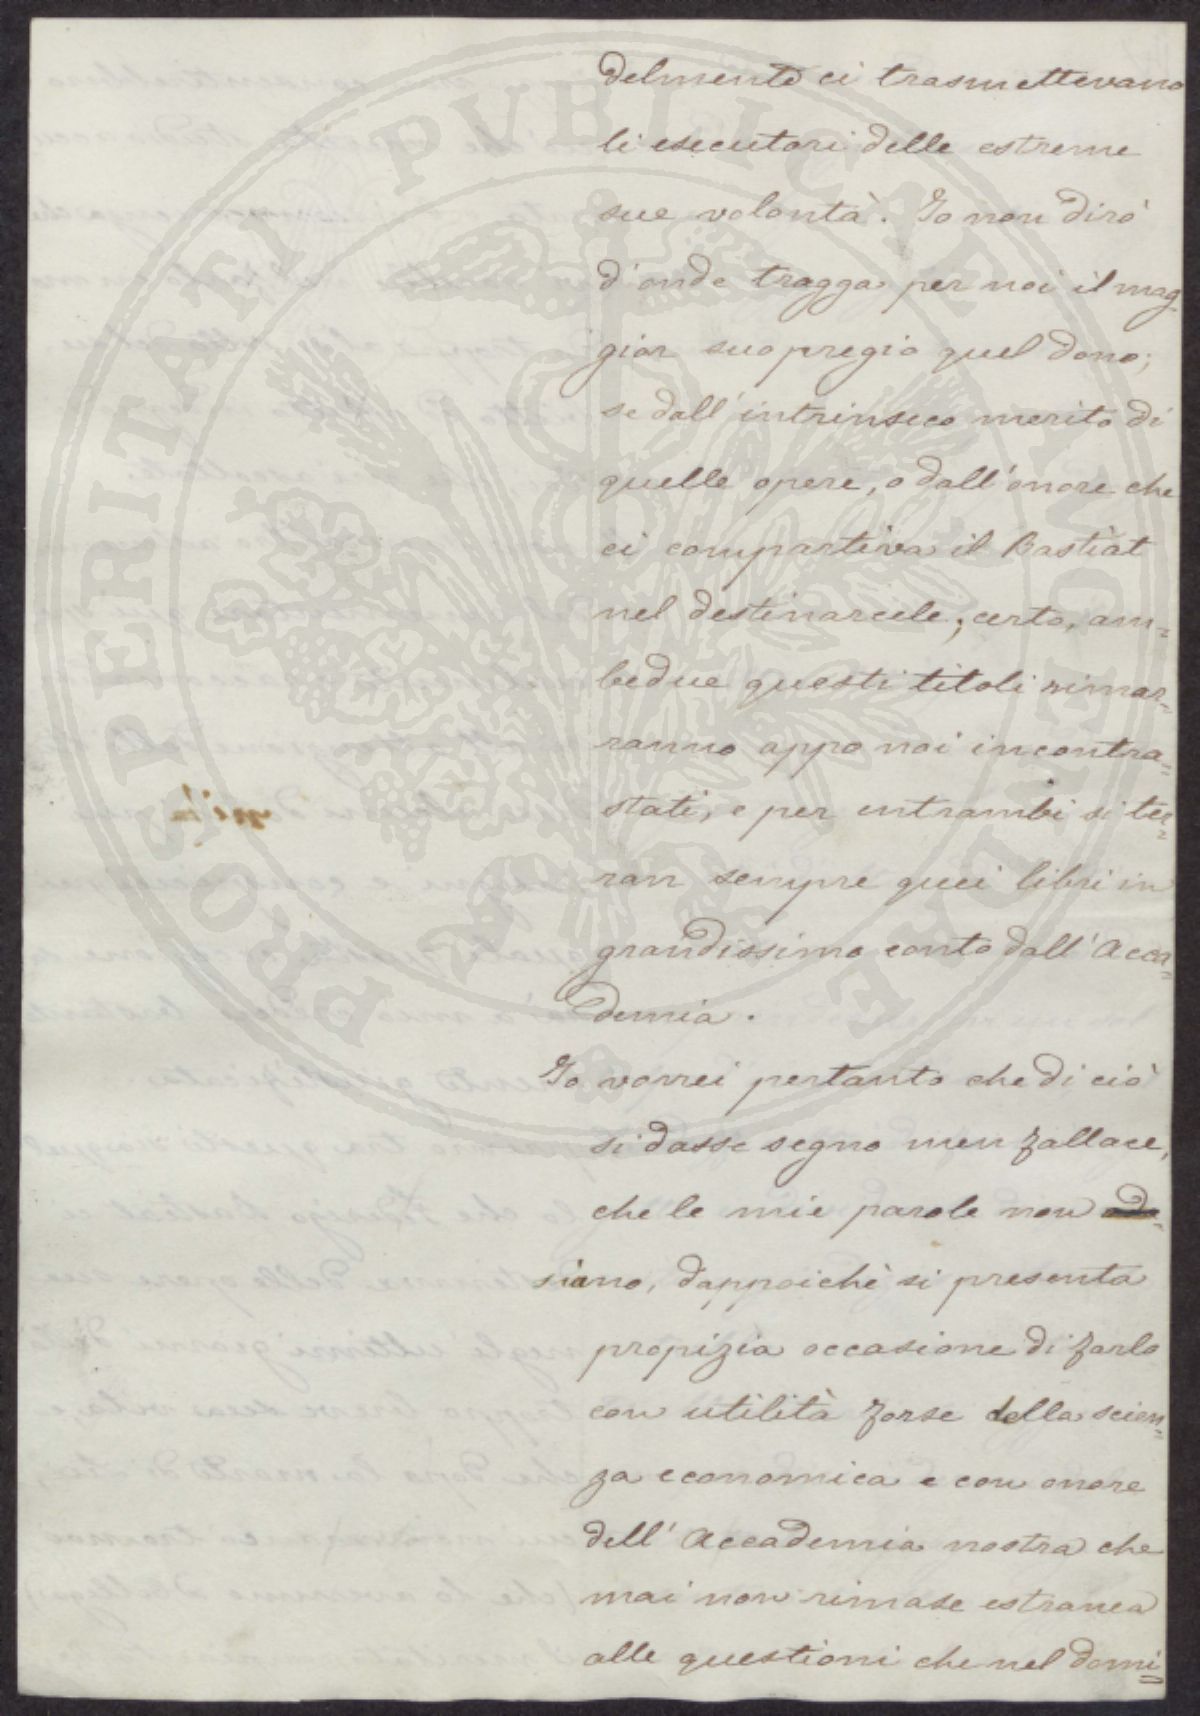 delmente ci trasmettevano
li esecutori delle estreme
sue volontà. Io non dirò
d'onde tragga per noi il mag-
gior suo pregio quel dono;
se dall'intrinseco merito di
quelle opere, o dall'onore che
ci compartiva il Bastiat
nel destinarcele; certo, am-
bedue questi titoli rimar-
ranno appo noi incontra-
stati, e per entrambi si ter-
ran sempre quei libri in
grandissimo conto dall'Acca-
demia.
Io vorrei pertanto che di ciò
si dasse segno men fallace,
che le mie parole non
siano, dappoichè si presenta
propizia occasione di farlo
con utilità forse della scien-
za economica e con onore
dell'Accademia nostra che
mai non rimase estranea
alle questioni che nel domi-
PROSPERITATI PVBLICAE AVGENDAE